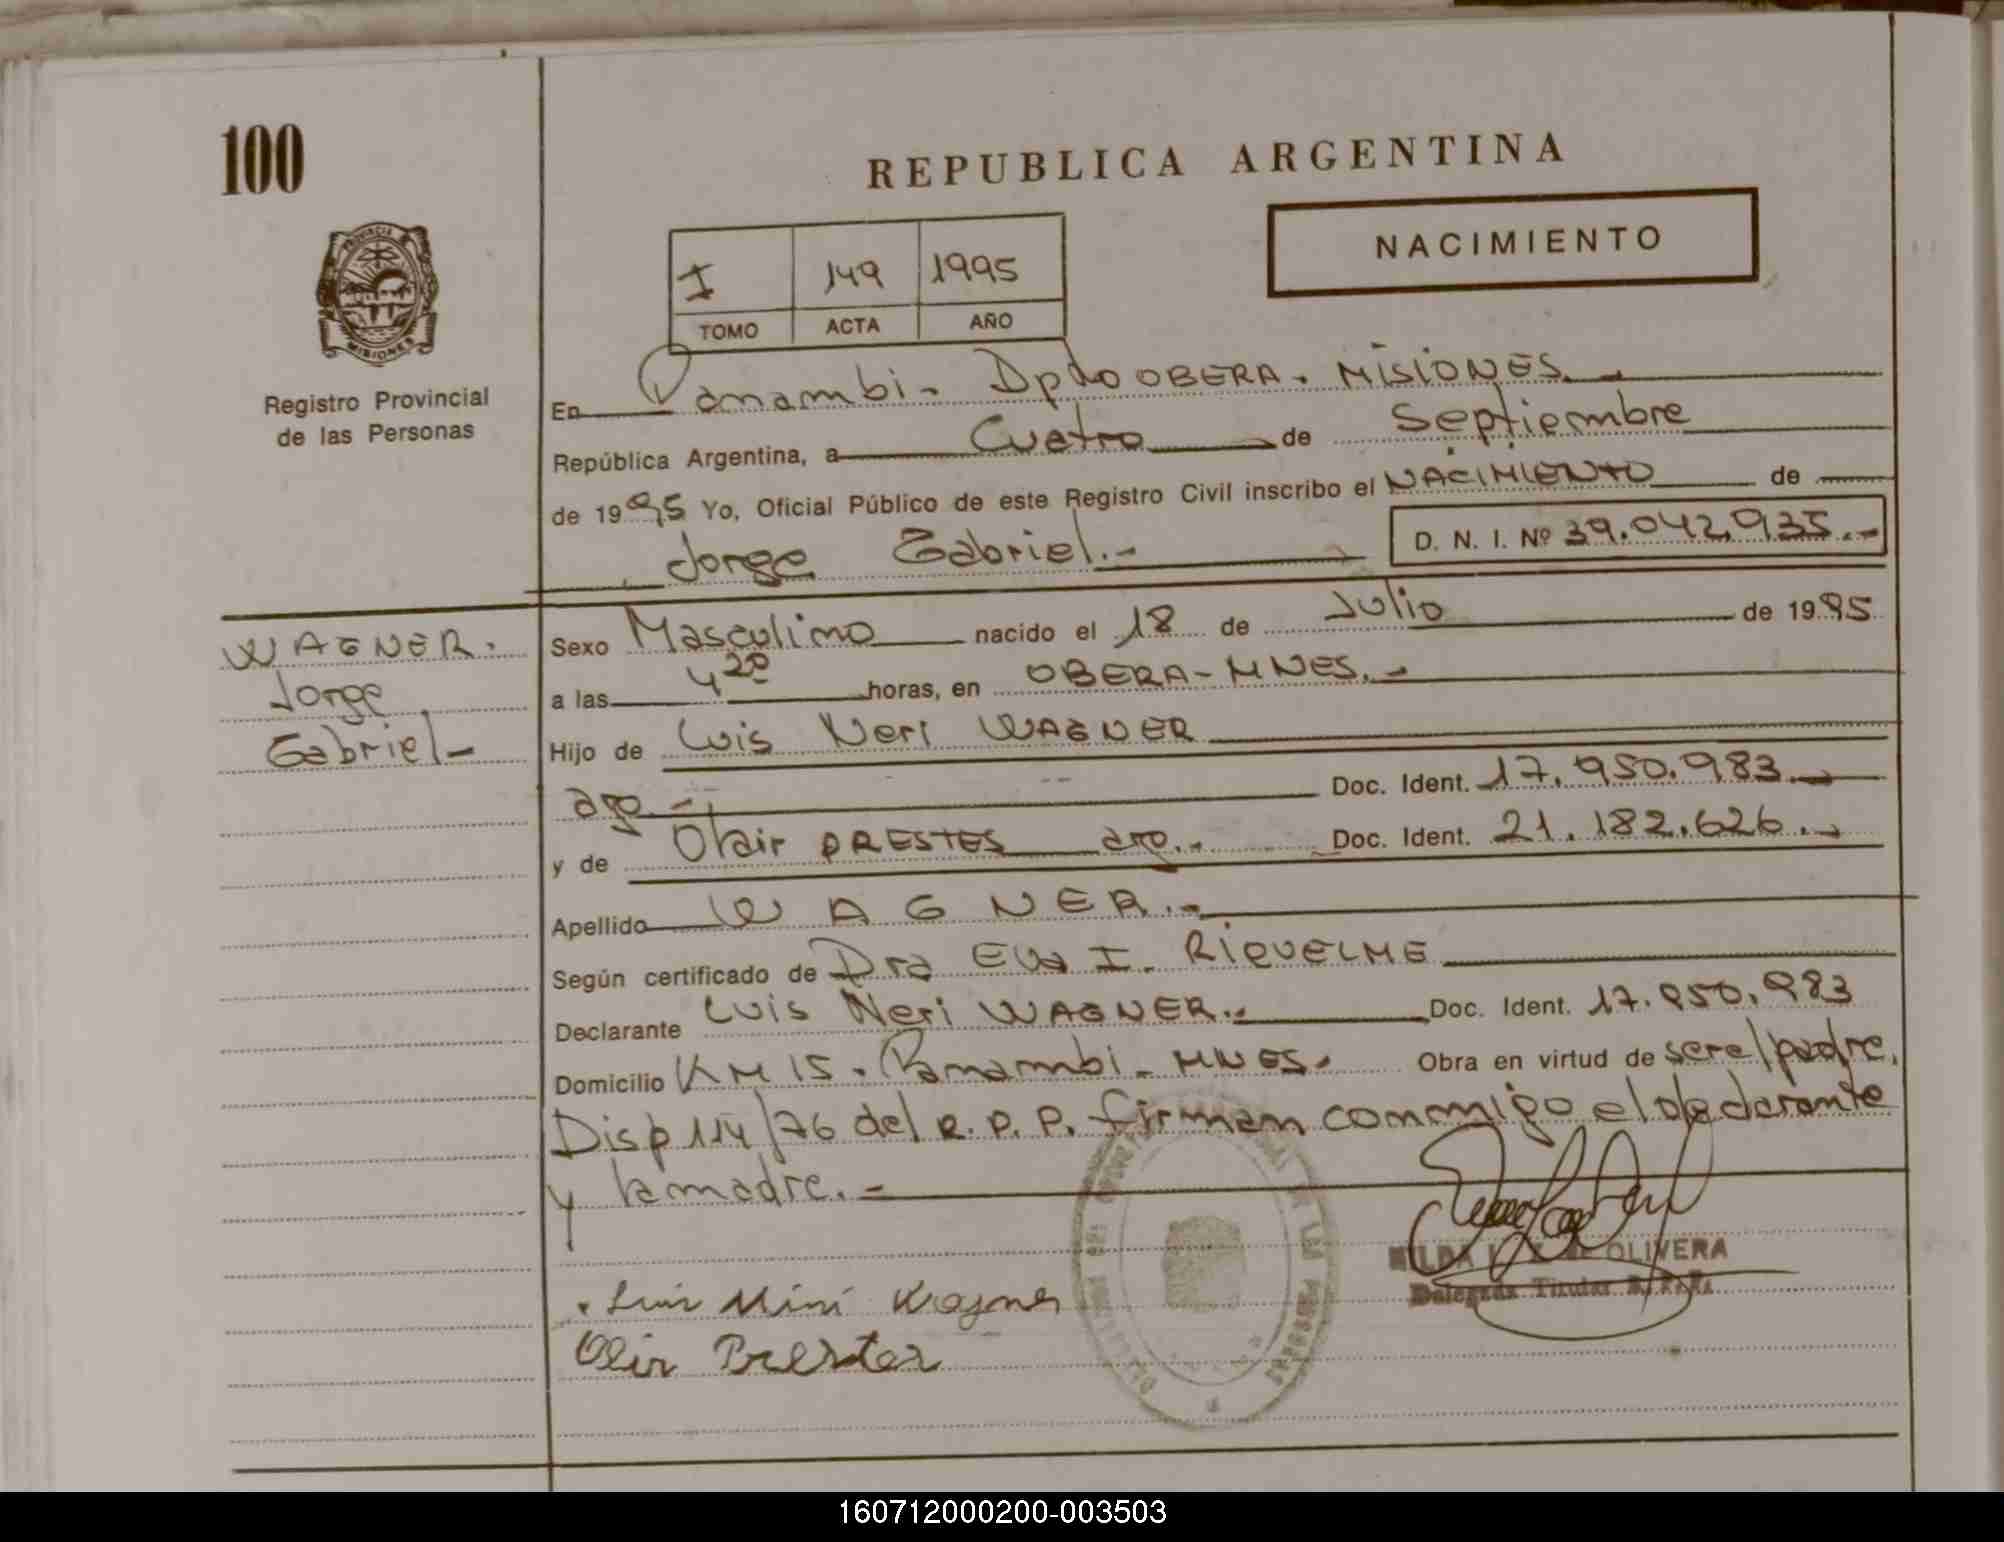 100
REPUBLICA ARGENTINA
NACIMIENTO
I 149 1995
TOMO ACTA AÑO
PROVINCIA
MISIONES
Registro Provincial
de las Personas
En Panambi - Dpto OBERA - MISIONES.-
República Argentina, a Cuatro de Septiembre
de 1995 Yo, Oficial Público de este Registro Civil inscribo el NACIMIENTO de
Jorge Gabriel.- D. N. I. Nº 39.042.935.-
WAGNER.
Jorge
Gabriel-
Sexo Masculino nacido el 18 de Julio de 1995
a las 4 20 horas, en OBERA-MNES.-
Hijo de Luis Neri WAGNER
arg.- Doc. Ident. 17.950.983.-
y de Olair PRESTES arg.- Doc. Ident. 21.182.626.-
Apellido WAGNER.-
Según certificado de Dra Eva I. RIQUELME
Declarante Luis Neri WAGNER.- Doc. Ident. 17.950.983
Domicilio KM 15. Panambi - MNES. Obra en virtud de ser el padre.
Disp 114/76 del R.P.P. firman conmigo el declarante
y la madre.-
OLIVERA
Delegada Titular
160712000200-003503